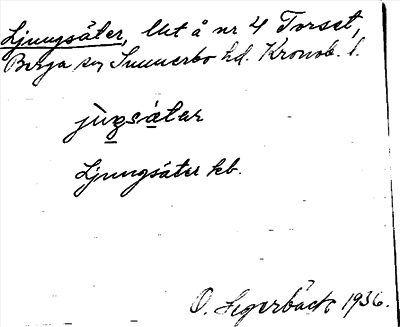 Ljungsäter, lht å nr 4 Torset,
Berga sn Sunnerbo hd. Kronob. l.
jùgsàtar
Ljungsäter kb.
O. Segerbäck 1936.